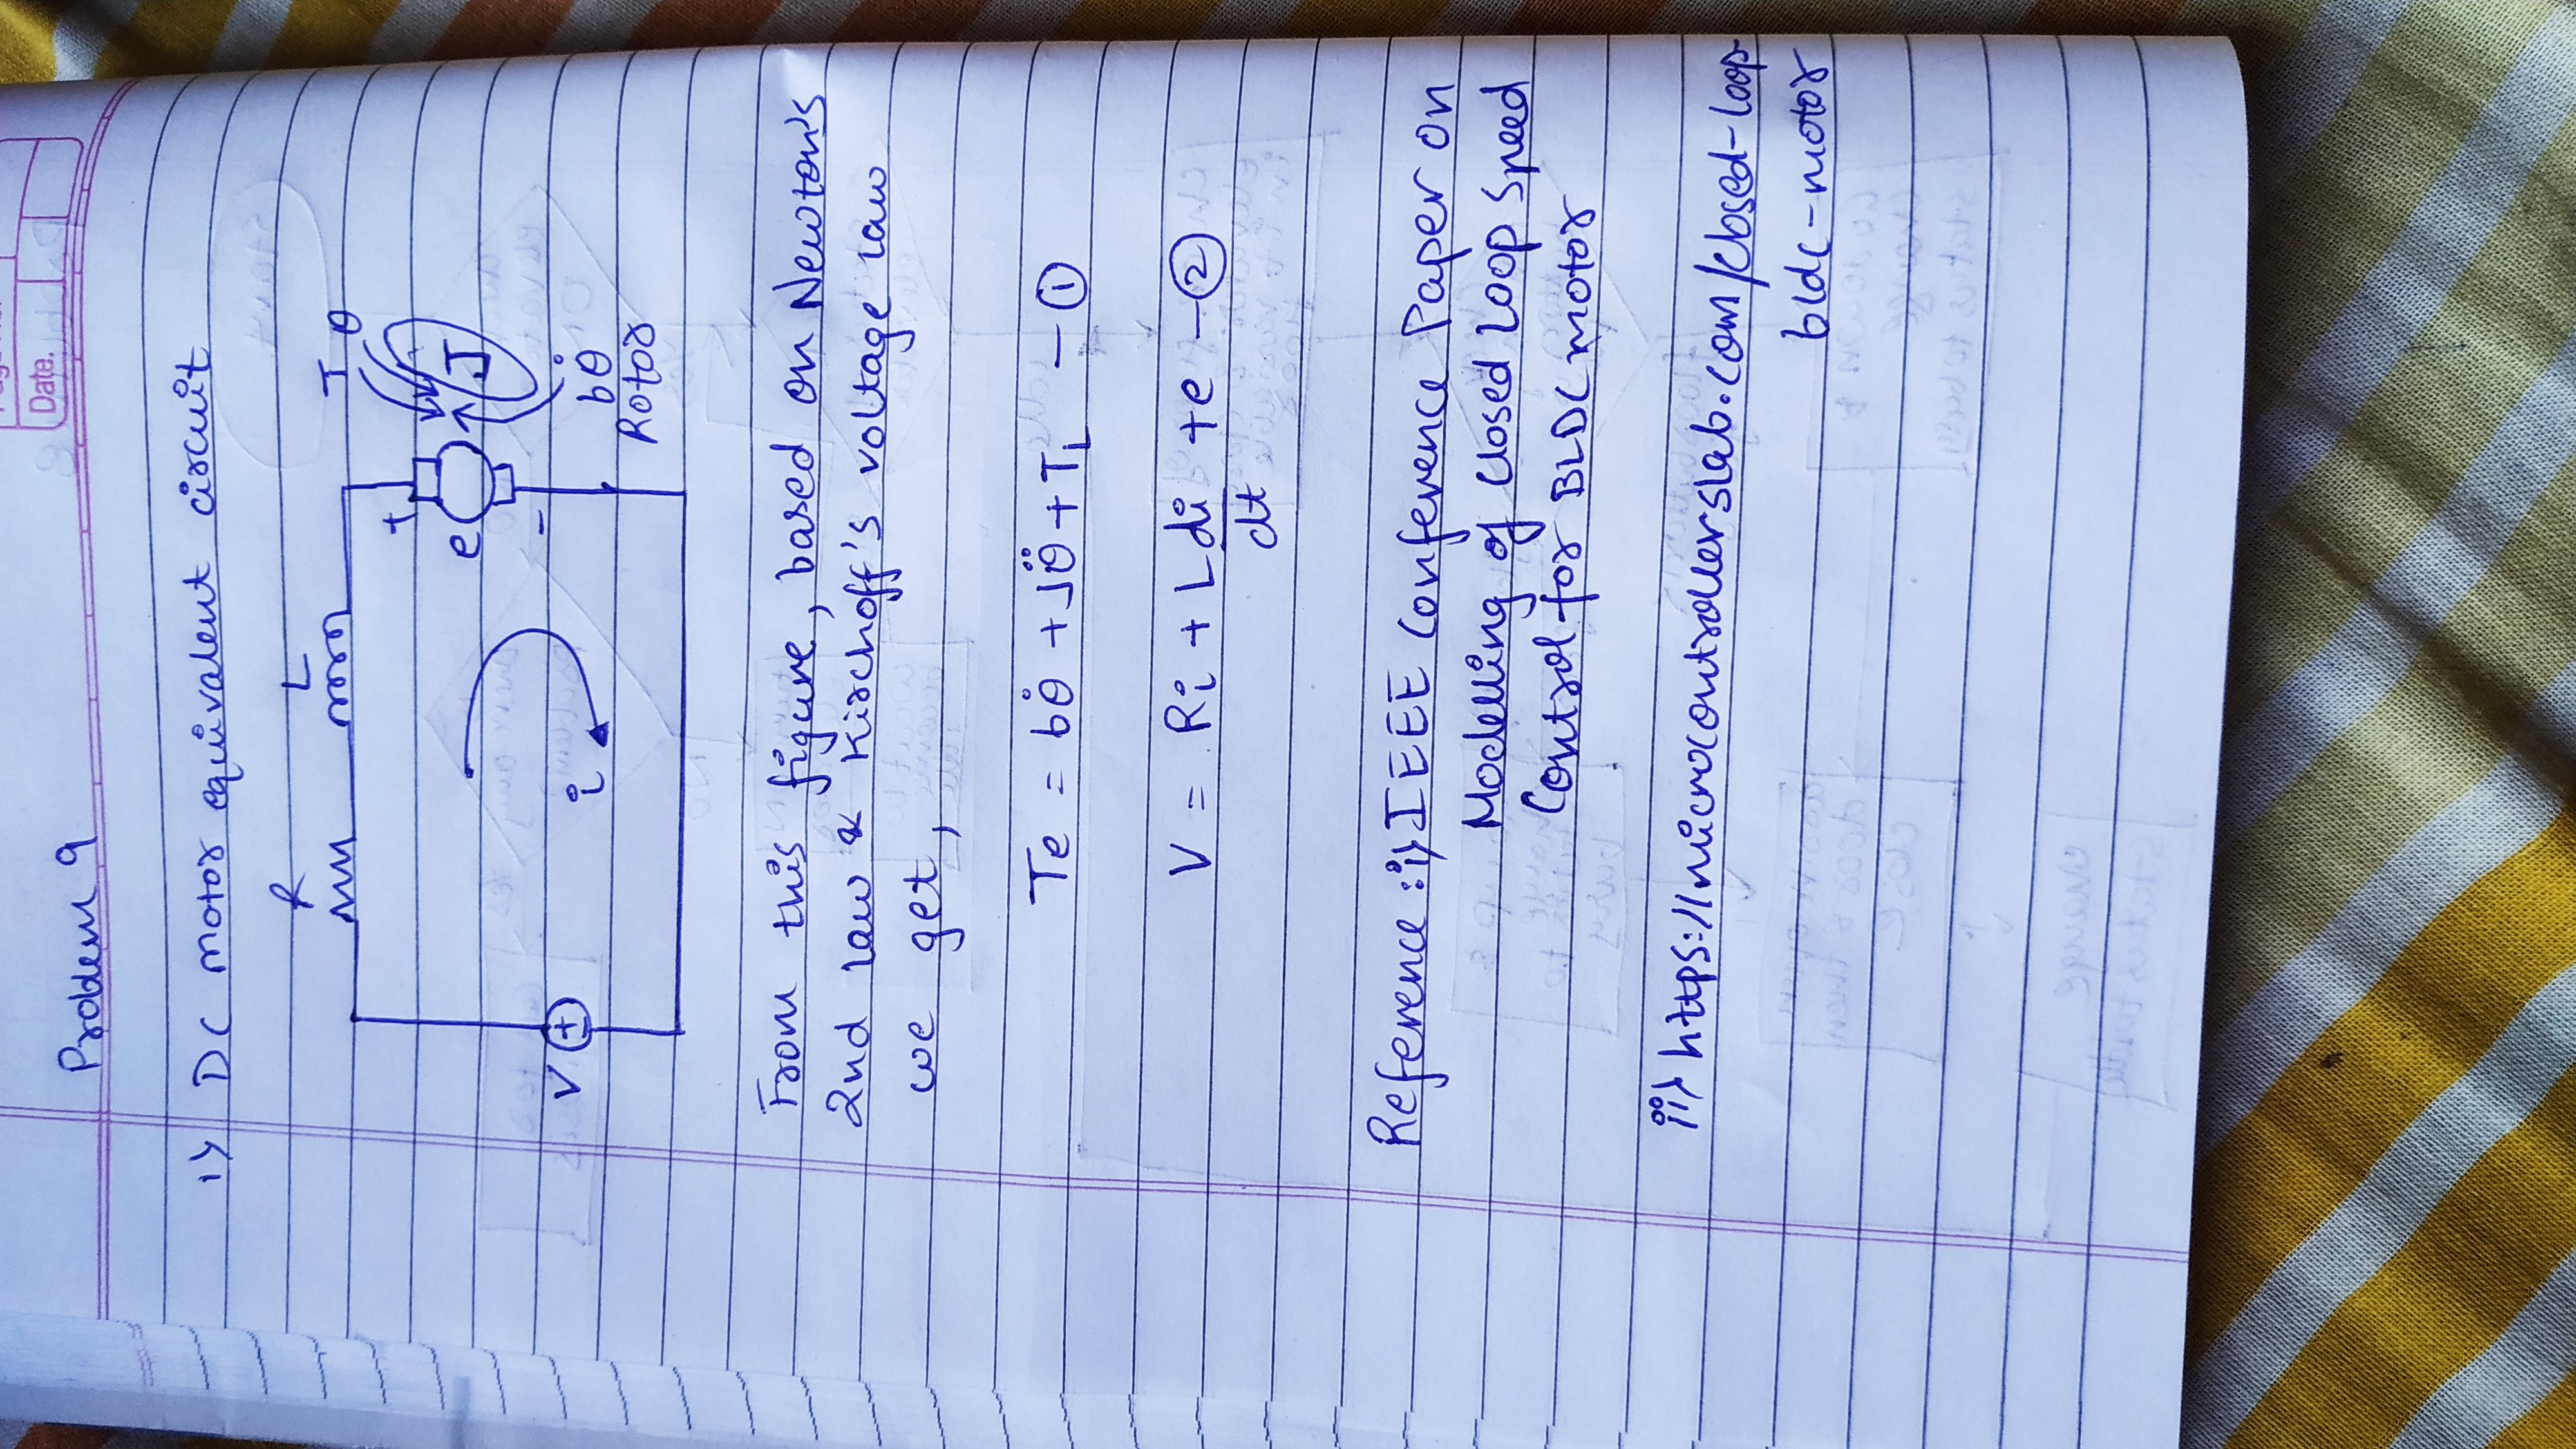 Date.
Problem 9
1) DC motor equivalent circuit
R L
T θ
+
e J
-
V + i
bθ̇
Rotor
From this figure, based on Newton's
2nd law & Kirchoff's voltage law
we get,
Te = bθ̇ + Jθ̈ + TL — ①
V = Ri + L di/dt + e — ②
Reference : i) IEEE Conference Paper on
Modelling of Closed Loop Speed
Control for BLDC motor
ii) https://microcontrollerslab.com/closed-loop-
bldc-motor